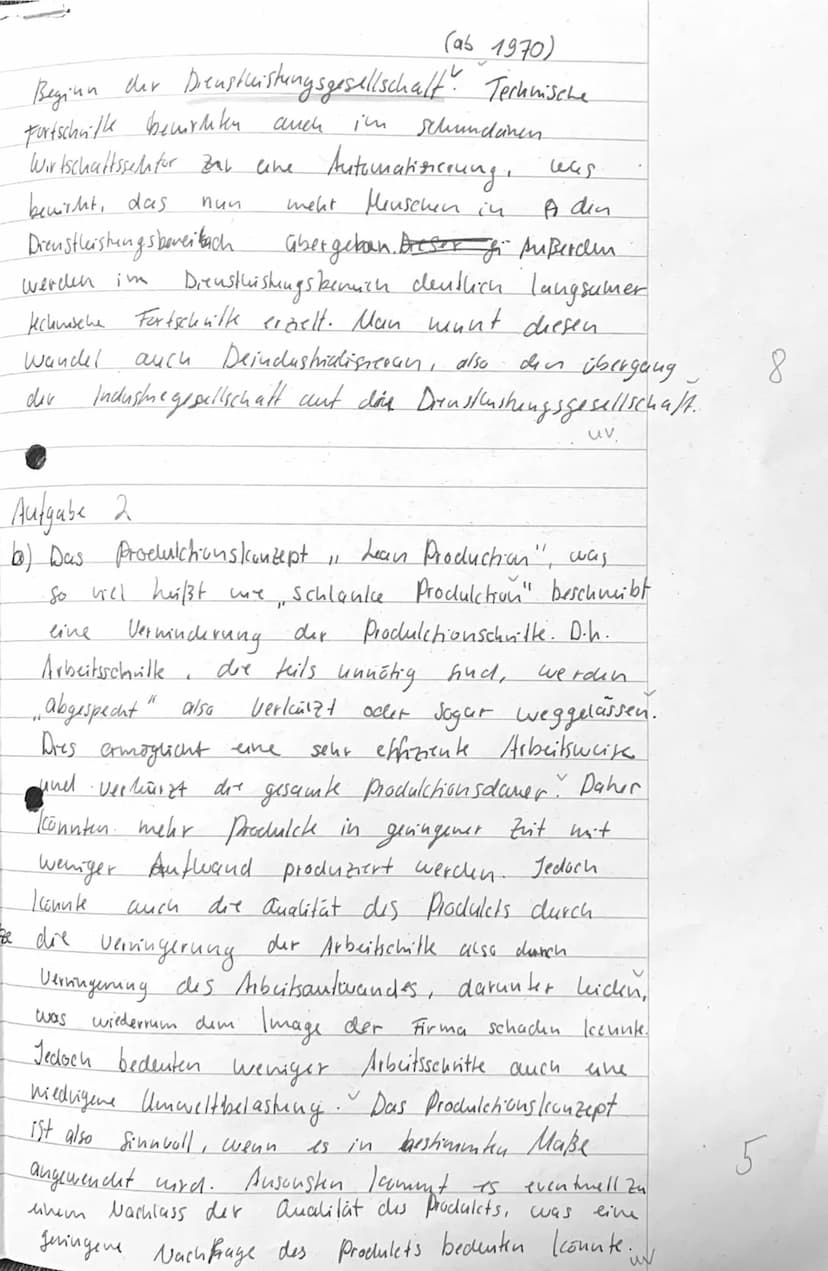 (ab 1970)
Beginn der Dienstleistungsgesellschaft. Technische
Fortschritte bewirkten auch im sekundären
Wirtschaftssektor eine Automatisierung, was
bewirkt, das nun mehr Menschen in den
Dienstleistungsbereich übergeben. Außerdem
werden im Dienstleistungsbereich deutlich langsamer
technische Fortschritte erzielt. Man nennt diesen
Wandel auch also den übergang
der Industriegesellschaft auf die Dienstleistungsgesellschaft.
uv.
8
Aufgabe 2
b) Das Produktionskonzept „Lean Production", was
so viel heißt wie „schlanke Produktion" beschreibt
eine Verminderung der Produktionschritte. D.h.
Arbeitsschritte, die teils unnötig sind, werden
„abgespeckt" also verkürzt oder sogar weggelassen.
Dies ermöglicht eine sehr effiziente Arbeitsweise
und verkürzt die gesamte Produktionsdauer. Daher
könnten mehr Produkte in geringener Zeit mit
weniger Aufwand produziert werden. Jedoch
könnte auch die Qualität des Produkts durch
die Verringerung der Arbeitschritte also durch
Verringerung des Arbeitsaufwandes, darunter leiden,
was wiederrum dem Image der Firma schaden könnte.
Jedoch bedeuten weniger Arbeitsschritte auch eine
niedrigene Umweltbelastung. Das Produktionskonzept
ist also sinnvoll, wenn es in bestimmten Maße
angewendet wird. Ansonsten kommt es eventuell zu
einem Nachlass der Qualität des Produkts, was eine
geringene Nachfrage des Produkts bedeuten könnte.
uv
5